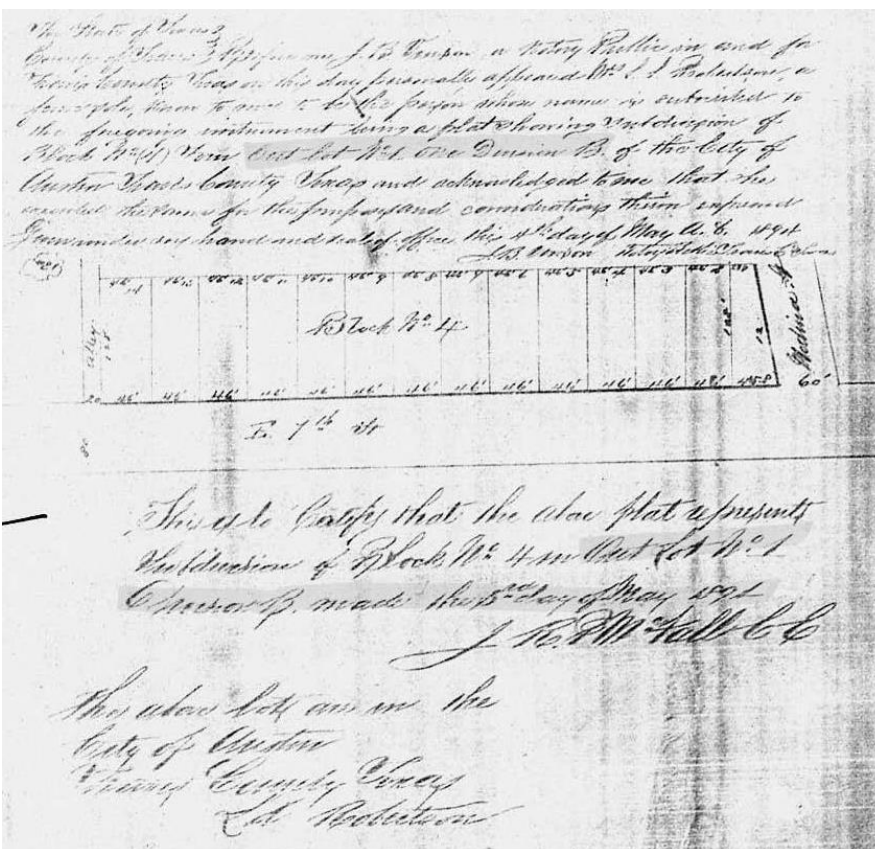 The State of Texas
County of Travis } Before me, J. B. Vinson, a Notary Public in and for
Travis County Texas on this day personally appeared Mrs L. J. Robertson, a
feme sole, known to me to be the person whose name is subscribed to
the foregoing instrument being a plat showing Subdivision of
Block No (4) Four Out Lot No 1 One Division B. of the City of
Austin Travis County Texas and acknowledged to me that she
executed the same for the purposes and considerations therein expressed
Given under my hand and seal of office this 4th day of May A. D. 1894
J. B. Vinson Notary Public Travis Co Texas
Block No 4
Alley
128
128
12
20 46' 46' 46' 46' 46' 46' 46' 46' 46' 46' 46' 46' 48' 60'
E. 7th St
80
This is to Certify that the above plat represents
Subdivision of Block No 4 in Out Lot No 1
Division B. made the 3rd day of May 1894
The above lots are in the
City of Austin
Travis County Texas
Robertson